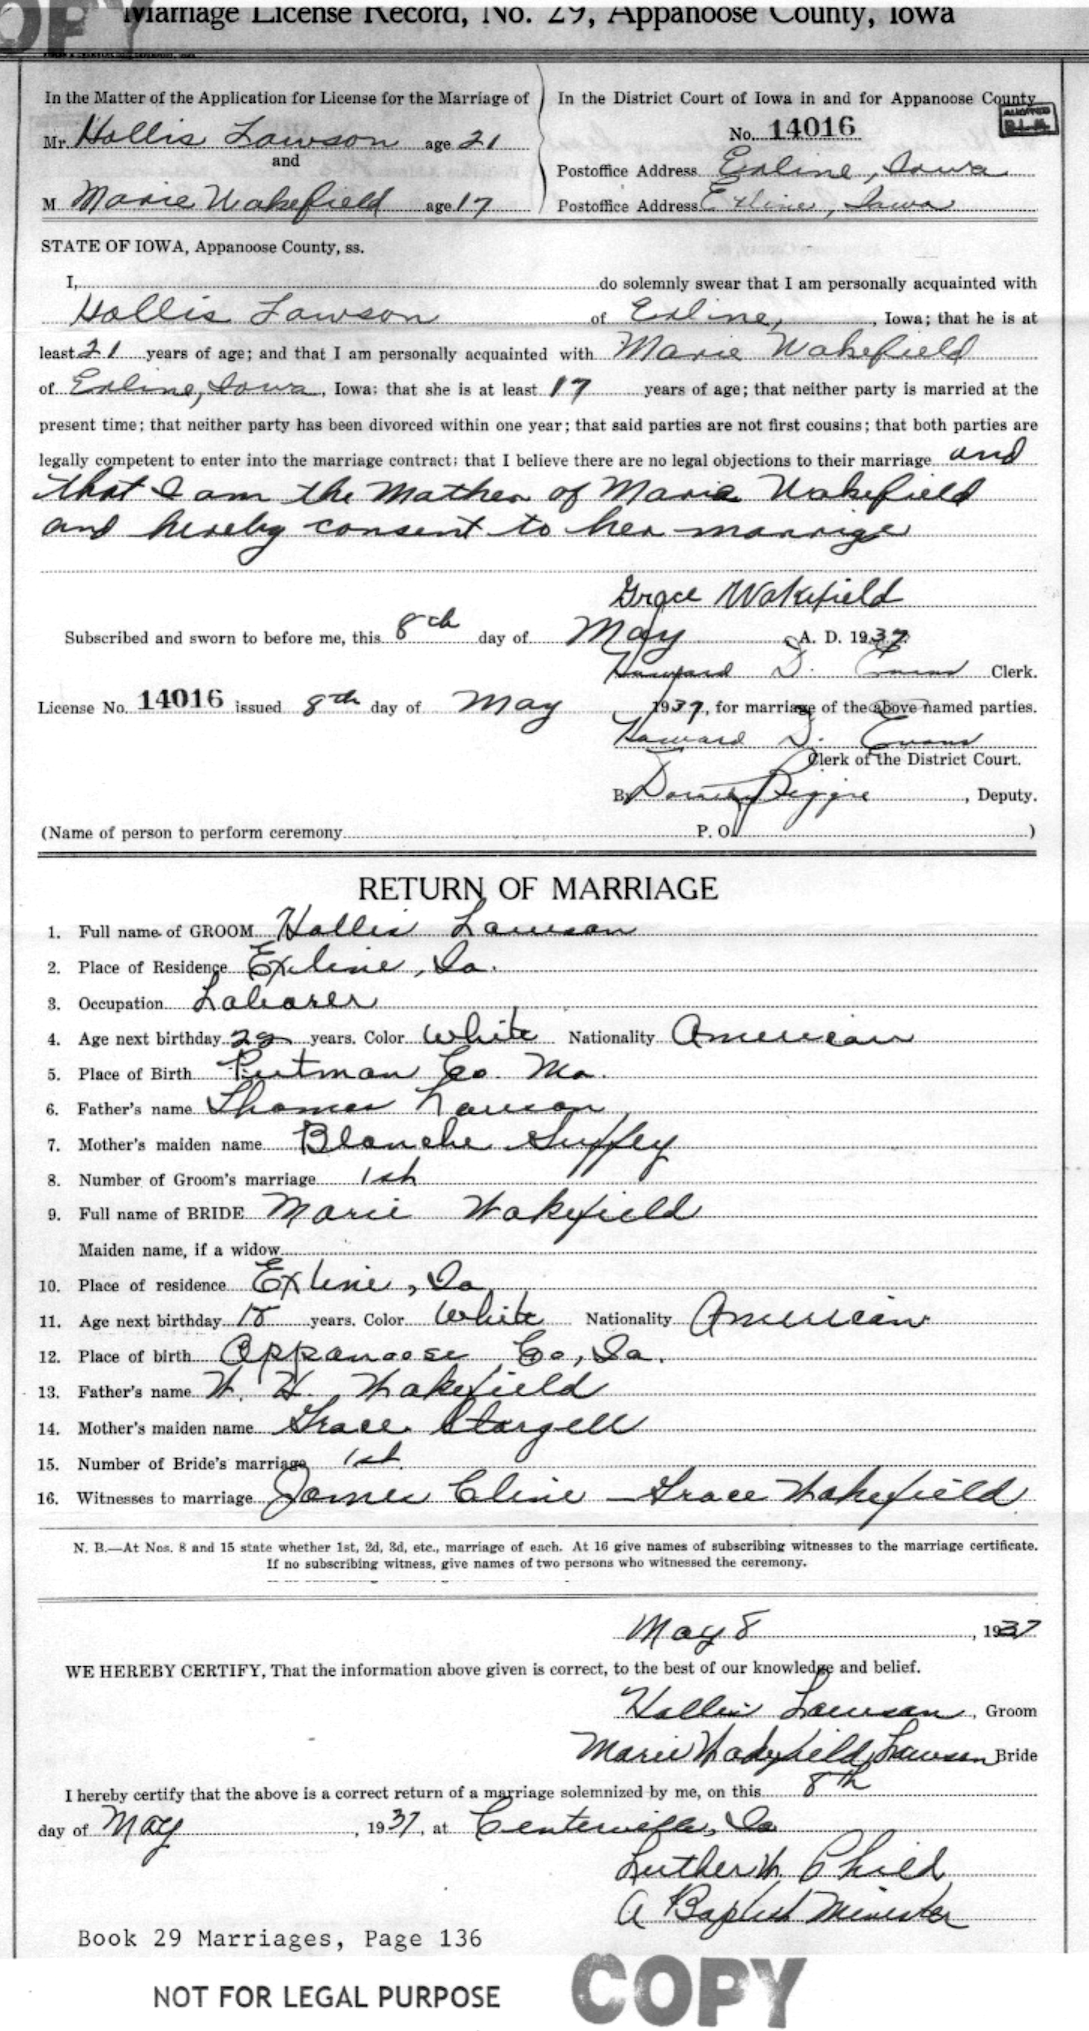 OPY
Marriage License Record, No. 29, Appanoose County, Iowa
In the Matter of the Application for License for the Marriage of
Mr. Hollis Lawson age 21
and
M Marie Wakefield age 17
In the District Court of Iowa in and for Appanoose County
No. 14016
Postoffice Address Exline, Iowa
Postoffice Address Exline, Iowa
STATE OF IOWA, Appanoose County, ss.
I, do solemnly swear that I am personally acquainted with
Hollis Lawson of Exline, , Iowa; that he is at
least 21 years of age; and that I am personally acquainted with Marie Wakefield
of Exline, Iowa, Iowa: that she is at least 17 years of age; that neither party is married at the
present time; that neither party has been divorced within one year; that said parties are not first cousins; that both parties are
legally competent to enter into the marriage contract; that I believe there are no legal objections to their marriage and
that I am the Mother of Marie Wakefield
and hereby consent to her marrige
Grace Wakefield
Subscribed and sworn to before me, this 8th day of May A. D. 1937
Howard D. Evans Clerk.
License No. 14016 issued 8th day of May 1937, for marriage of the above named parties.
Howard D. Evans
Clerk of the District Court.
By , Deputy.
(Name of person to perform ceremony P. O. )
RETURN OF MARRIAGE
1. Full name of GROOM Hollis Lawson
2. Place of Residence Exline, Ia.
3. Occupation Laborer
4. Age next birthday 22 years. Color White Nationality American
5. Place of Birth Putman Co. Mo.
6. Father's name Thomas Lawson
7. Mother's maiden name Blanche Guffey
8. Number of Groom's marriage 1st
9. Full name of BRIDE Marie Wakefield
Maiden name, if a widow
10. Place of residence Exline, Ia
11. Age next birthday 18 years. Color White Nationality American
12. Place of birth Appanoose Co, Ia.
13. Father's name W. H. Wakefield
14. Mother's maiden name Grace Stargell
15. Number of Bride's marriage 1st
16. Witnesses to marriage James Cline - Grace Wakefield
N. B.—At Nos. 8 and 15 state whether 1st, 2d, 3d, etc., marriage of each. At 16 give names of subscribing witnesses to the marriage certificate.
If no subscribing witness, give names of two persons who witnessed the ceremony.
May 8, 1937
WE HEREBY CERTIFY, That the information above given is correct, to the best of our knowledge and belief.
Hollis Lawson, Groom
Marie Lawson Bride
I hereby certify that the above is a correct return of a marriage solemnized by me, on this 8th
day of May, 1937, at Centerville, Ia
Luther W. Child
A Baptist Minister
Book 29 Marriages, Page 136
NOT FOR LEGAL PURPOSE
COPY